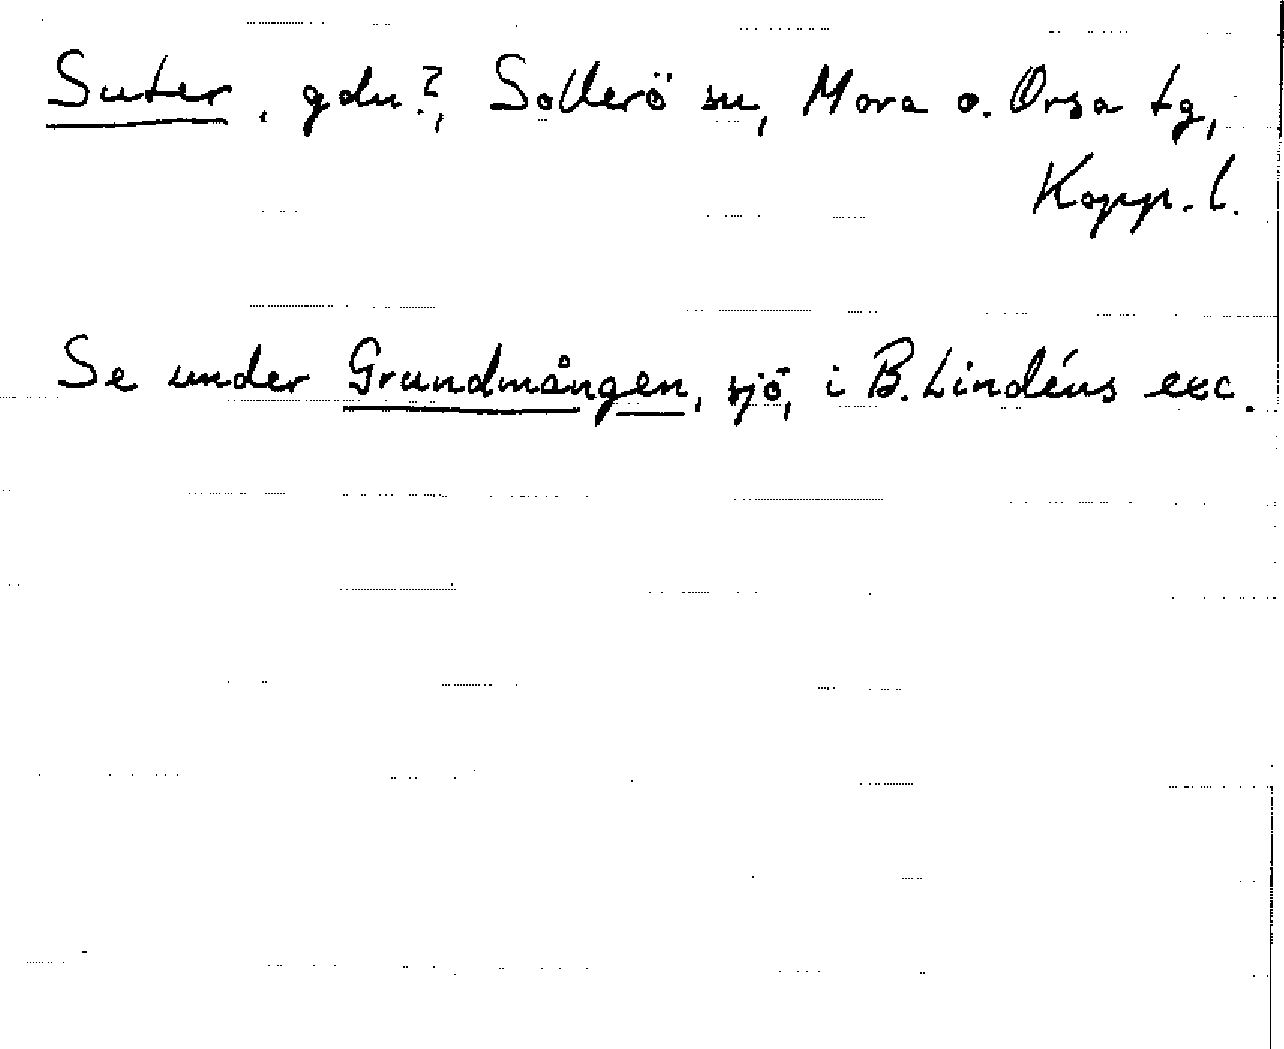 Suter, gdn?, Sollerö sn, Mora o. Orsa tg,
Kopp. l.
Se under Grundmången, sjö, i B. Lindéns exc.